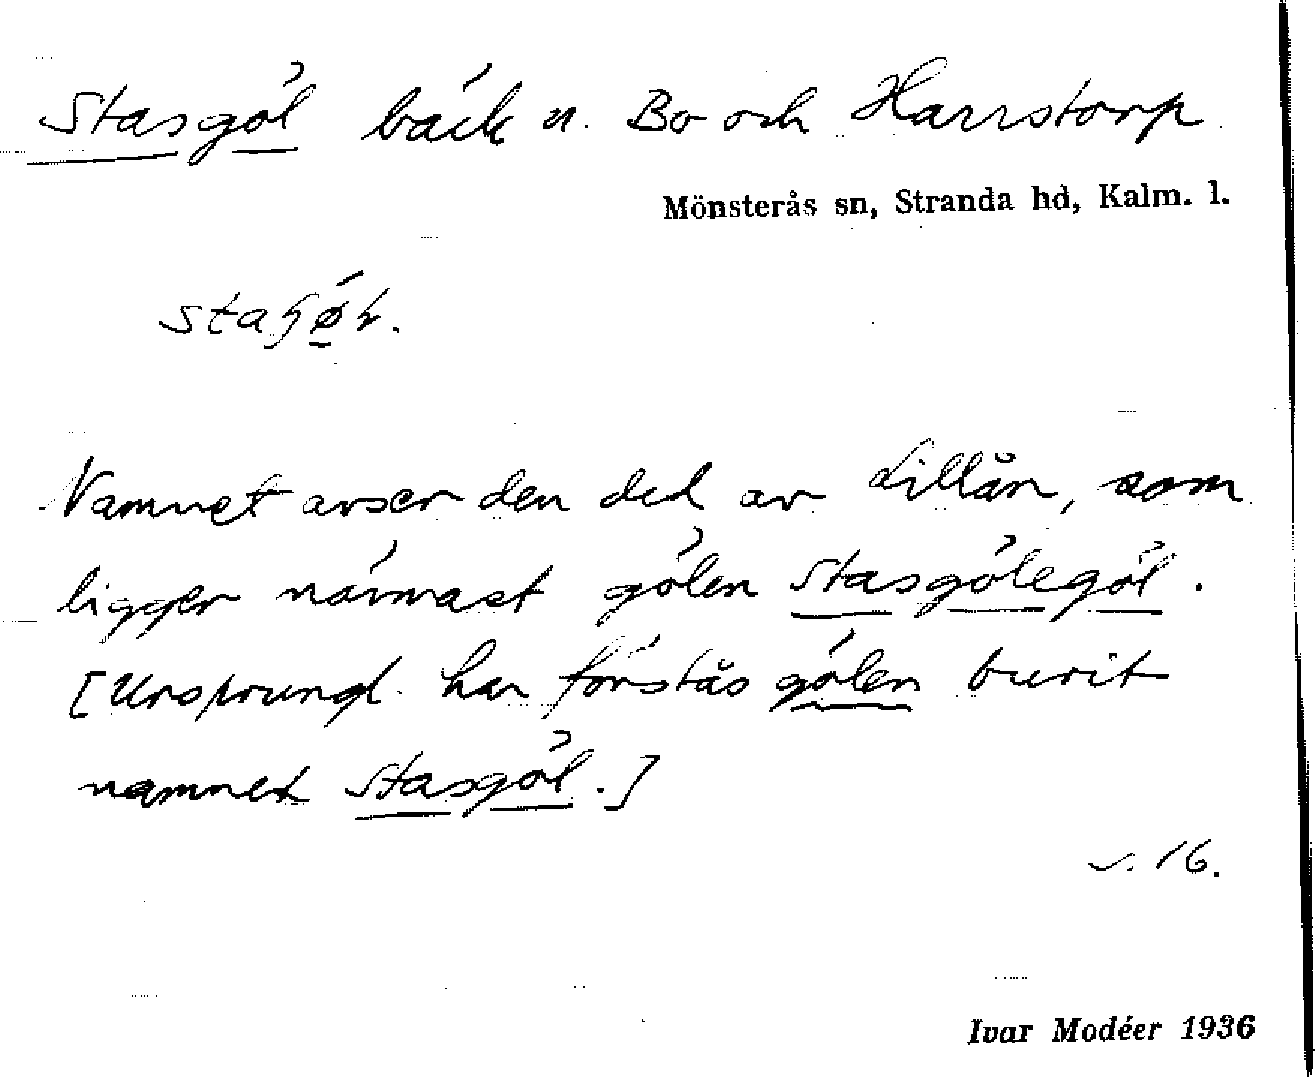 Stasgöl bäck u. Bo och Harrstorp
Mönsterås sn, Stranda hd, Kalm. l.
Namnet avser den del av Lillån, som
ligger närmast gölen Stasgölegöl.
[Ursprungl. har förstås gölen burit
namnet Stasgöl.]
s. 16.
Ivar Modéer 1936